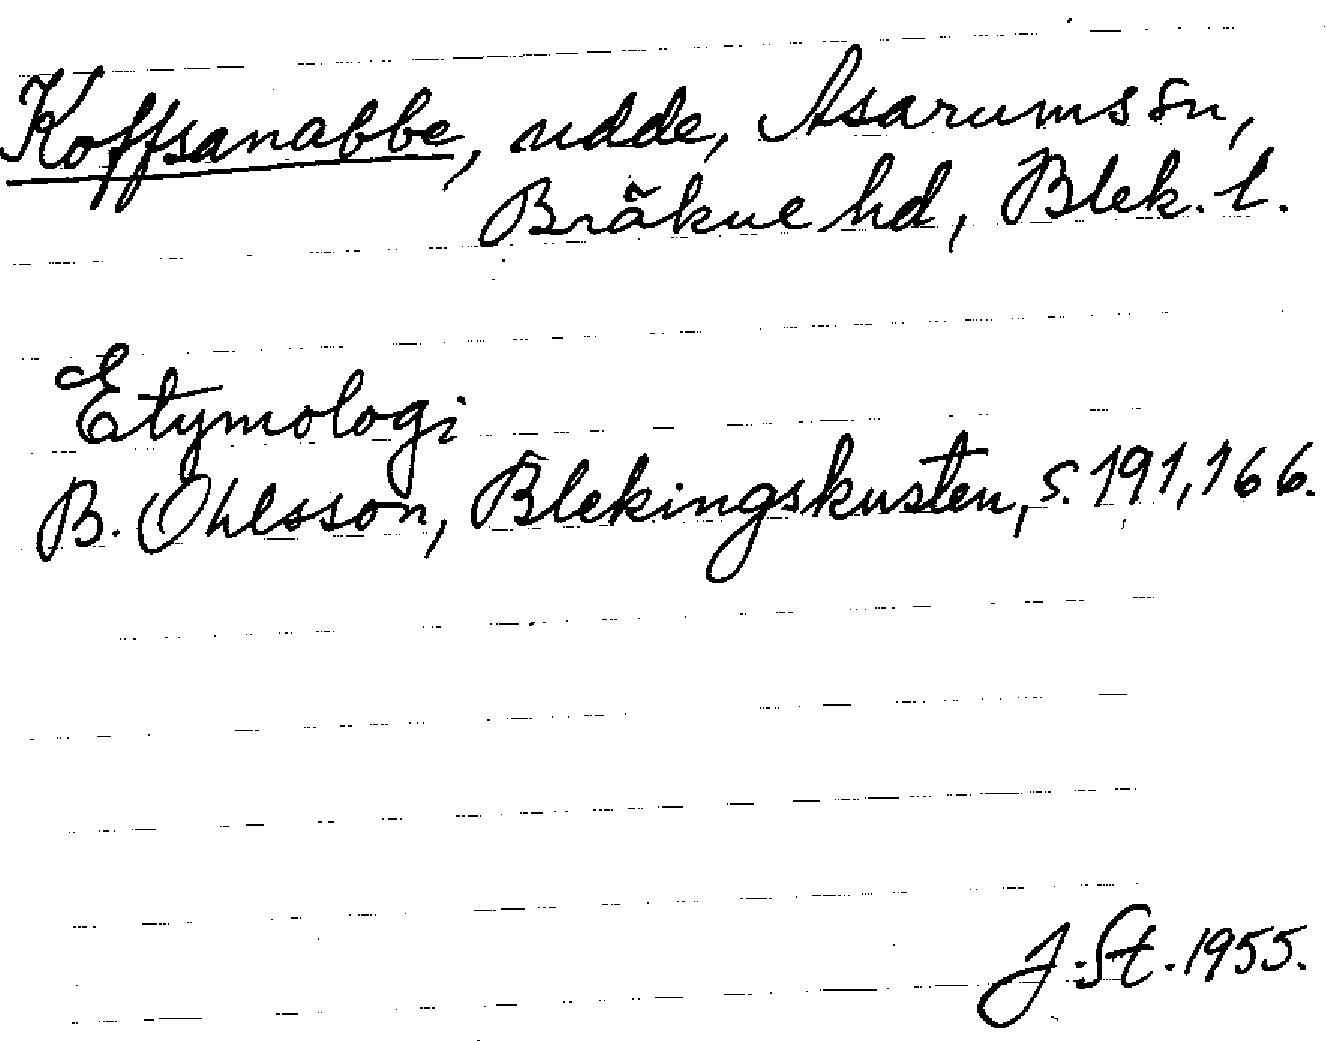 Koffsanabbe, udde, Asarums sn,
Bräkne hd, Blek. l.
Etymologi
B. Ohlsson, Blekingskusten, s. 191, 166.
J. St. 1955.